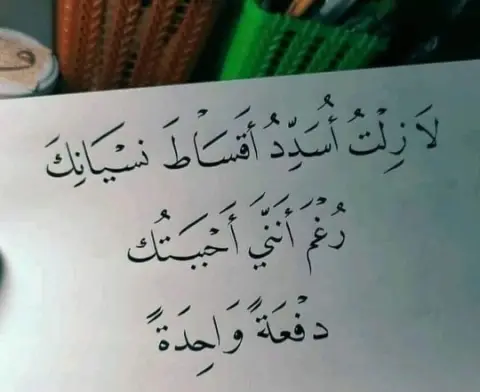 لَا زِلْتُ أُسَدِّدُ أَقسَاْطَ نسْيَانِكَ
رُغْمَ أَنَنَّي أَحبَبَتُك
دفْعَةً وَاحِدَةً